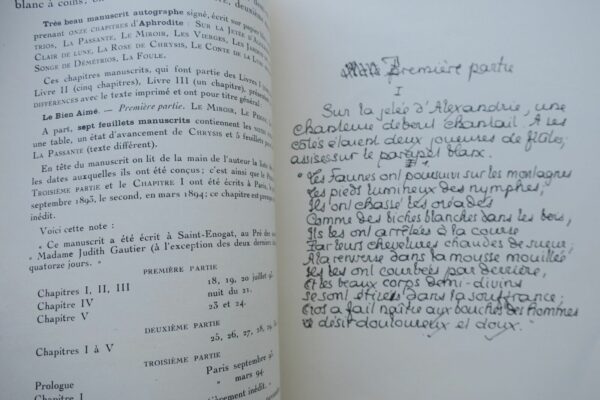 blanc à coins,
Très beau manuscrit autographe signé, écrit sur papier
prenant onze chapitres d'Aphrodite : Sur la Jetée d'A
trios, La Passante, Le Miroir, Les Vierges, Les Jardins
Clair de lune, La Rose de Chrysis, Le Conte de la
Songe de Démétrios, La Foule.
Ces chapitres manuscrits, qui font partie des Livres I
Livre II (cinq chapitres), Livre III (un chapitre), présentent
différences avec le texte imprimé et ont pour titre général
Le Bien Aimé. — Première partie. Le Miroir, Le
A part, sept feuillets manuscrits contiennent les
une table, un état d'avancement de Chrysis et 5 feuillets
La Passante (texte différent).
En tête du manuscrit on lit de la main de l'auteur la
les dates auxquelles ils ont été conçus ; c'est ainsi que le
Troisième partie et le Chapitre I ont été écrits à Paris, le
septembre 1893, le second, en mars 1894; ce chapitre est presque
inédit.
Voici cette note :
« Ce manuscrit a été écrit à Saint-Enogat, au Pré des
" Madame Judith Gautier (à l'exception des deux derniers
quatorze jours. »
PREMIÈRE PARTIE
Chapitres I, II, III 18, 19, 20 juillet 93
Chapitre IV nuit du 21.
Chapitre V 23 et 24.
DEUXIÈME PARTIE
Chapitres I à V 25, 26, 27, 28,
TROISIÈME PARTIE
Prologue Paris septembre 93
Chapitre I " mars 94.
inédit.
Première partie
I
Sur la jetée d'Alexandrie, une
chanteuse debout chantait. A ses
côtés étaient deux joueuses de flûte,
assises sur le parapet blanc.
I
"Les Faunes ont poursuivi sur les montagnes
Les pieds lumineux des nymphes;
Ils ont chassé les oréades
Comme des biches blanches dans les bois,
Ils les ont arrêtées à la course
Par leurs chevelures chaudes de sueur;
A la renverse dans la mousse mouillée
Ils les ont courbées par derrière,
Et les beaux corps demi-divins
Se sont étirés dans la souffrance;
Eros a fait naître aux bouches des Hommes
le désir douloureux et doux."